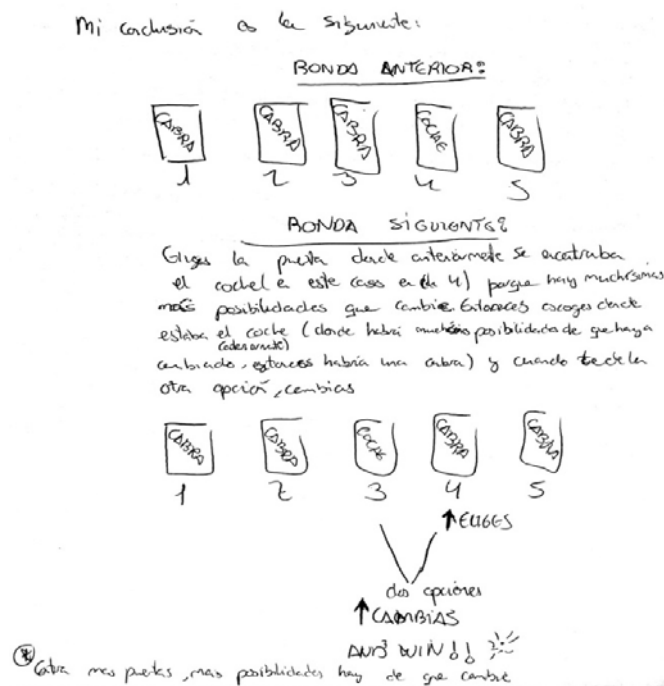 Mi conclusión es la siguiente:
RONDA ANTERIOR:
CABRA CABRA CABRA COCHE CABRA
1 2 3 4 5
RONDA SIGUIENTE:
Eliges la puerta donde anteriormente se encontraba
el coche (en este caso en la 4) porque hay muchísimas
más posibilidades que cambie. Entonces escoges donde
estaba el coche (donde habrá muchas posibilidades de que haya
cambiado, entonces habría una cabra) y cuando te de la
otra opción, cambias
CABRA CABRA COCHE CABRA CABRA
1 2 3 4 5
↑ ELIGES
dos opciones
↑ CAMBIAS
AND WIN!!
más puertas, más posibilidades hay de que cambie